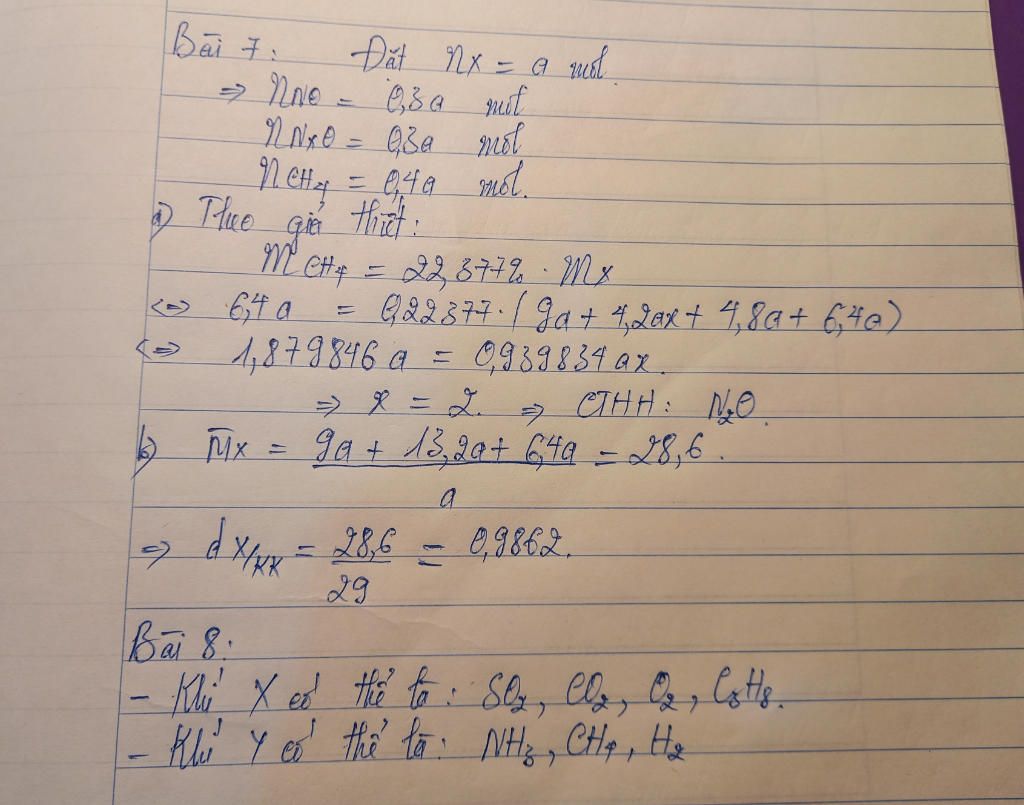 Bài 7: Đặt nX = a mol.
⇒ nNO = 0,3a mol
nNxO = 0,3a mol
nCH4 = 0,4a mol.
a) Theo giả thiết:
mCH4 = 22,377% . mX
<=> 6,4a = 0,22377.(9a + 4,2ax + 4,8a + 6,4a)
<=> 1,879846a = 0,939834ax.
⇒ x = 2. ⇒ CTHH: N2O.
b) M̄x = 9a + 13,2a + 6,4a / a = 28,6.
⇒ d X/KK = 28,6 / 29 = 0,9862.
Bài 8:
- Khí X có thể là: SO2, CO2, O2, C3H8.
- Khí Y có thể là: NH3, CH4, H2